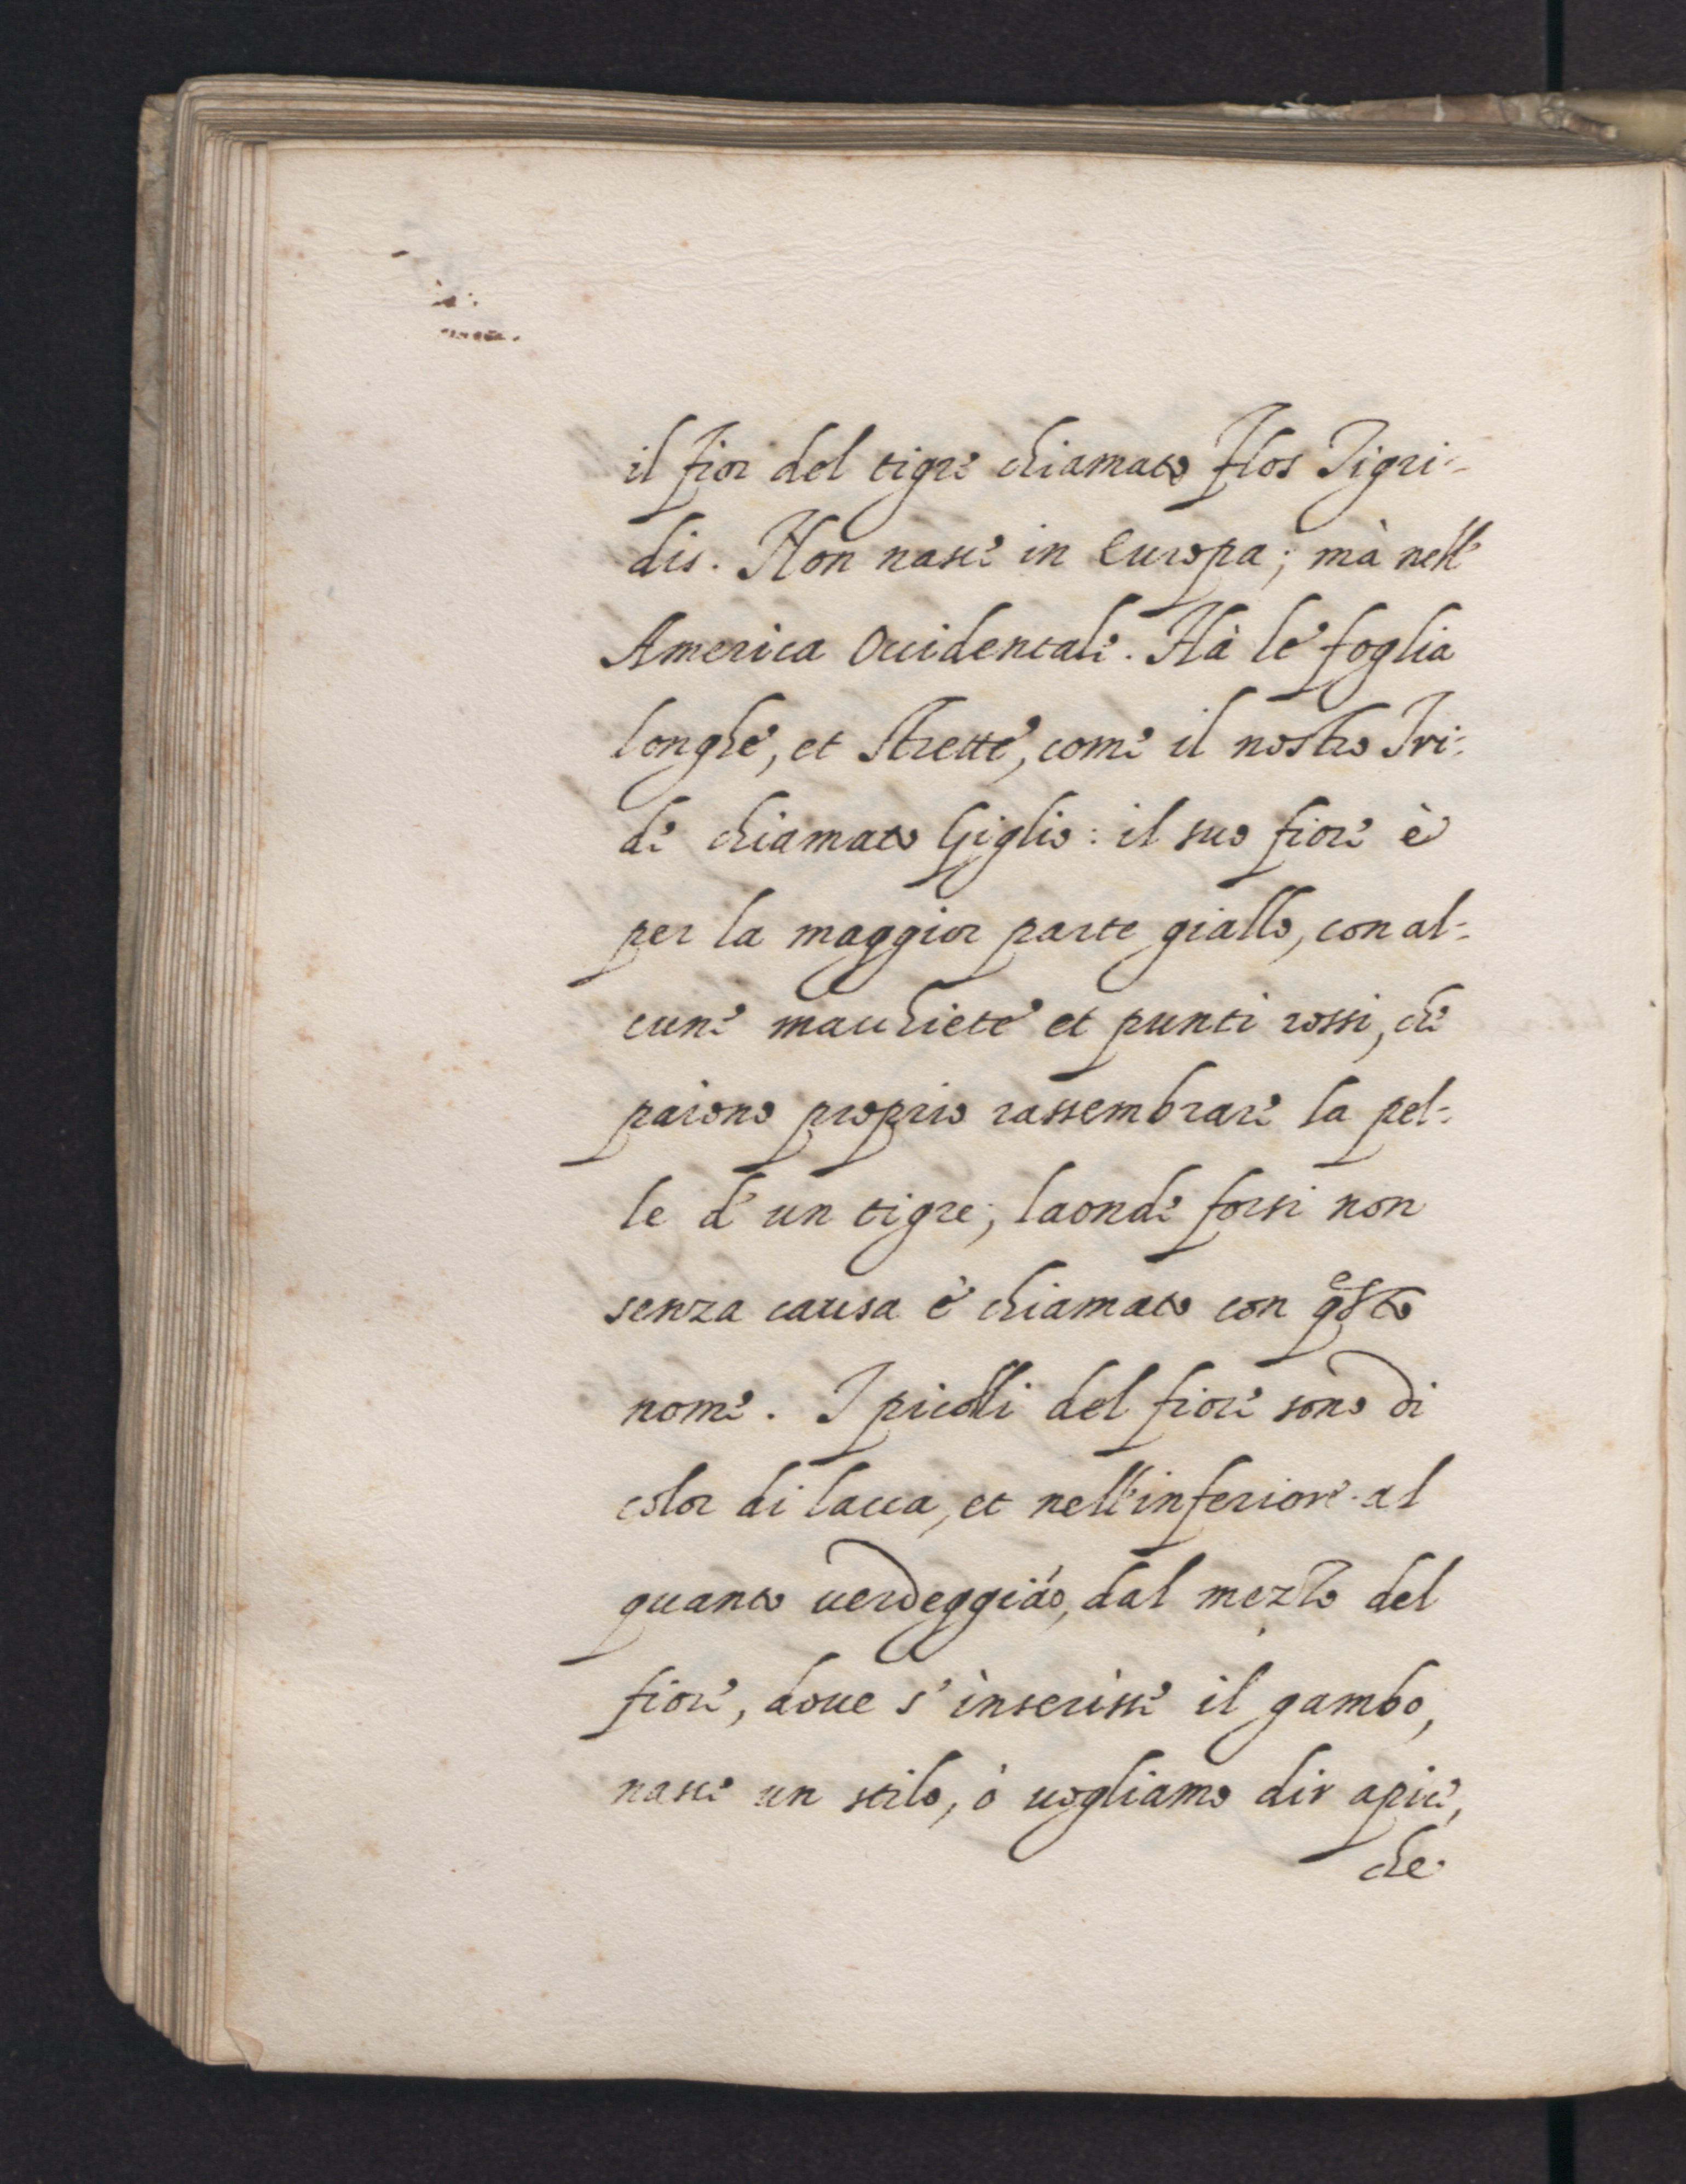 il fior del tigre chiamato Flos Tigri-
dis. Non nasce in Europa; mà nell'
America Occidentale. Hà le foglia
longhe, et strette, come il nostro Iri:
de chiamato Giglio: il suo fiore è
per la maggior parte giallo, con al-
cune macchiete et punti rossi, che
paiono proprio rassembrare la pel-
le d'un tigre; laonde forsi non
senza causa è chiamato con qesto
nome. I picolli del fiore sono di
color di lacca, et nell'inferiore al
quanto uerdeggiāo, dal mezzo del
fiore, doue s'inserisse il gambo,
nasce un stilo, ò uogliamo dir apice,
che